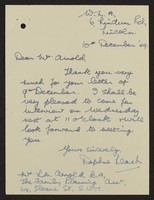 W. L. A,
6
Lincoln
10th December '49.
Dear Mr Arnold,
Thank you very
much for your letter of
9th December. I shall be
very pleased to come for
interview on Wednesday
next at 11 o'clock & will
look forward to seeing
you.
Yours sincerely,
Daphne
Mr Arnold B.A,
The Family Planning Assn